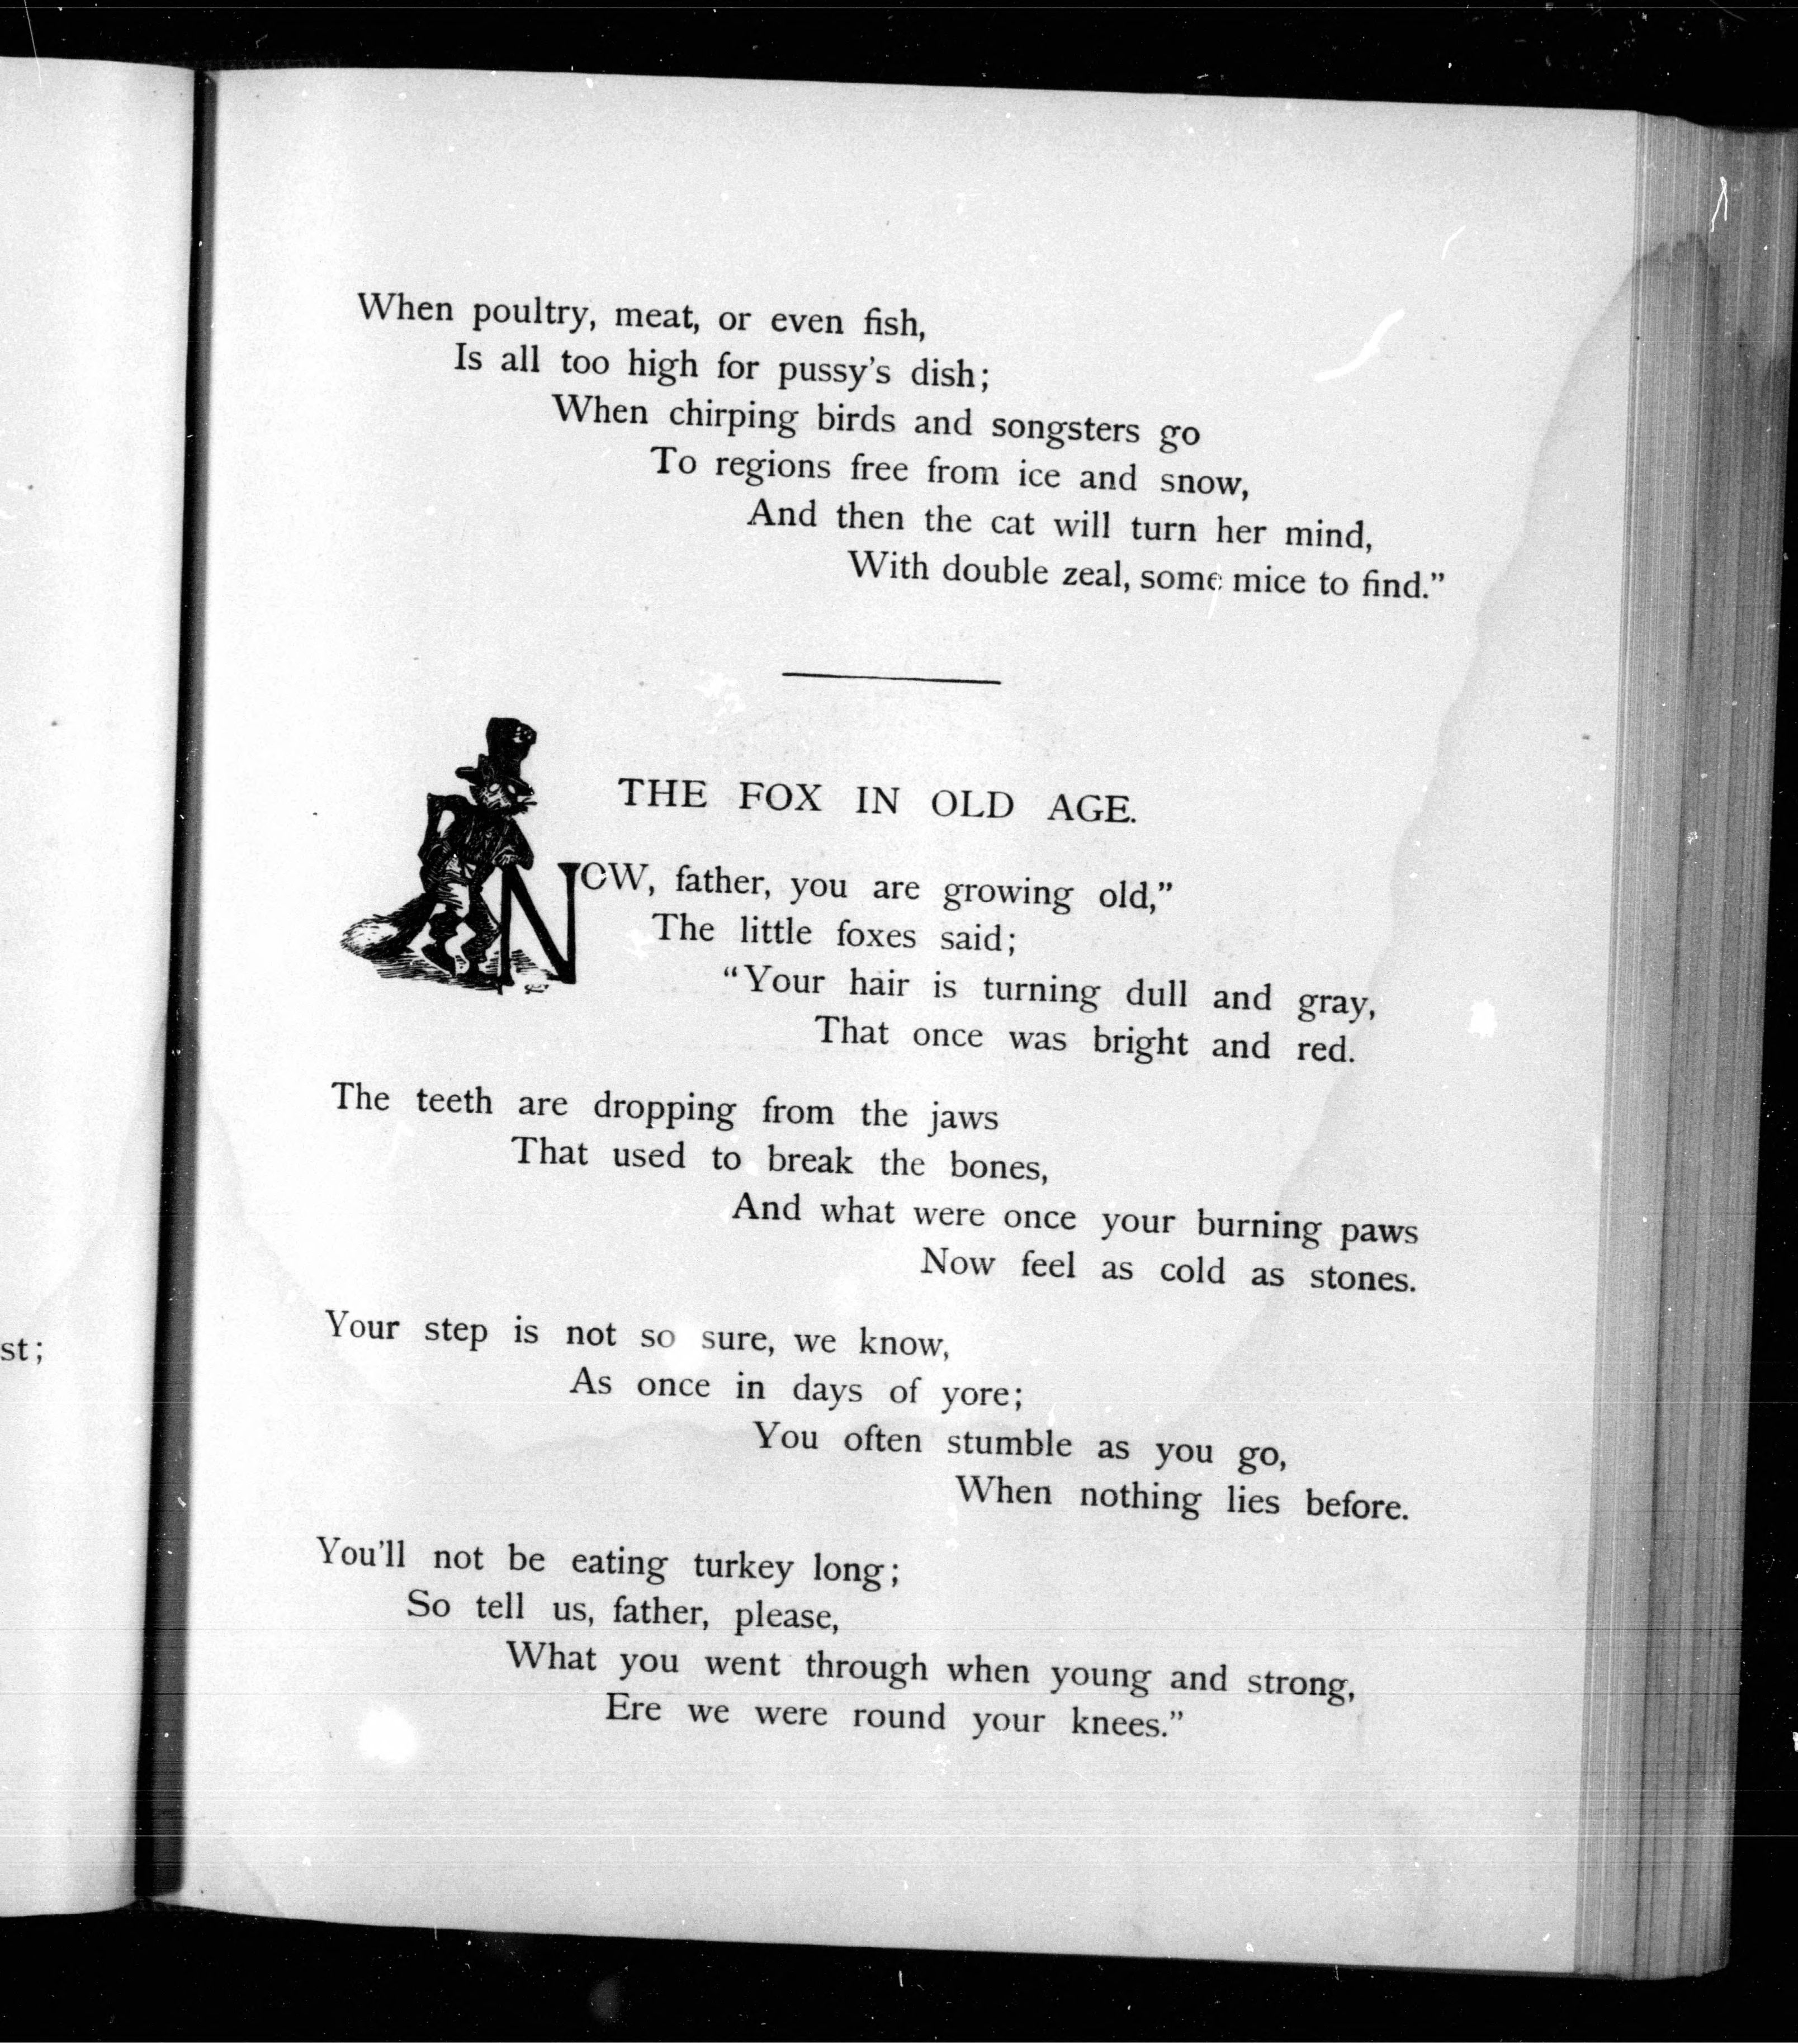 When poultry, meat, or even fish,
Is all too high for pussy's dish;
When chirping birds and songsters go
To regions free from ice and snow,
And then the cat will turn her mind,
With double zeal, some mice to find.”
THE FOX IN OLD AGE.
NOW, father, you are growing old,”
The little foxes said;
“Your hair is turning dull and gray,
That once was bright and red.
The teeth are dropping from the jaws
That used to break the bones,
And what were once your burning paws
Now feel as cold as stones.
Your step is not so sure, we know,
As once in days of yore;
You often stumble as you go,
When nothing lies before.
You'll not be eating turkey long;
So tell us, father, please,
What you went through when young and strong,
Ere we were round your knees.”
st;